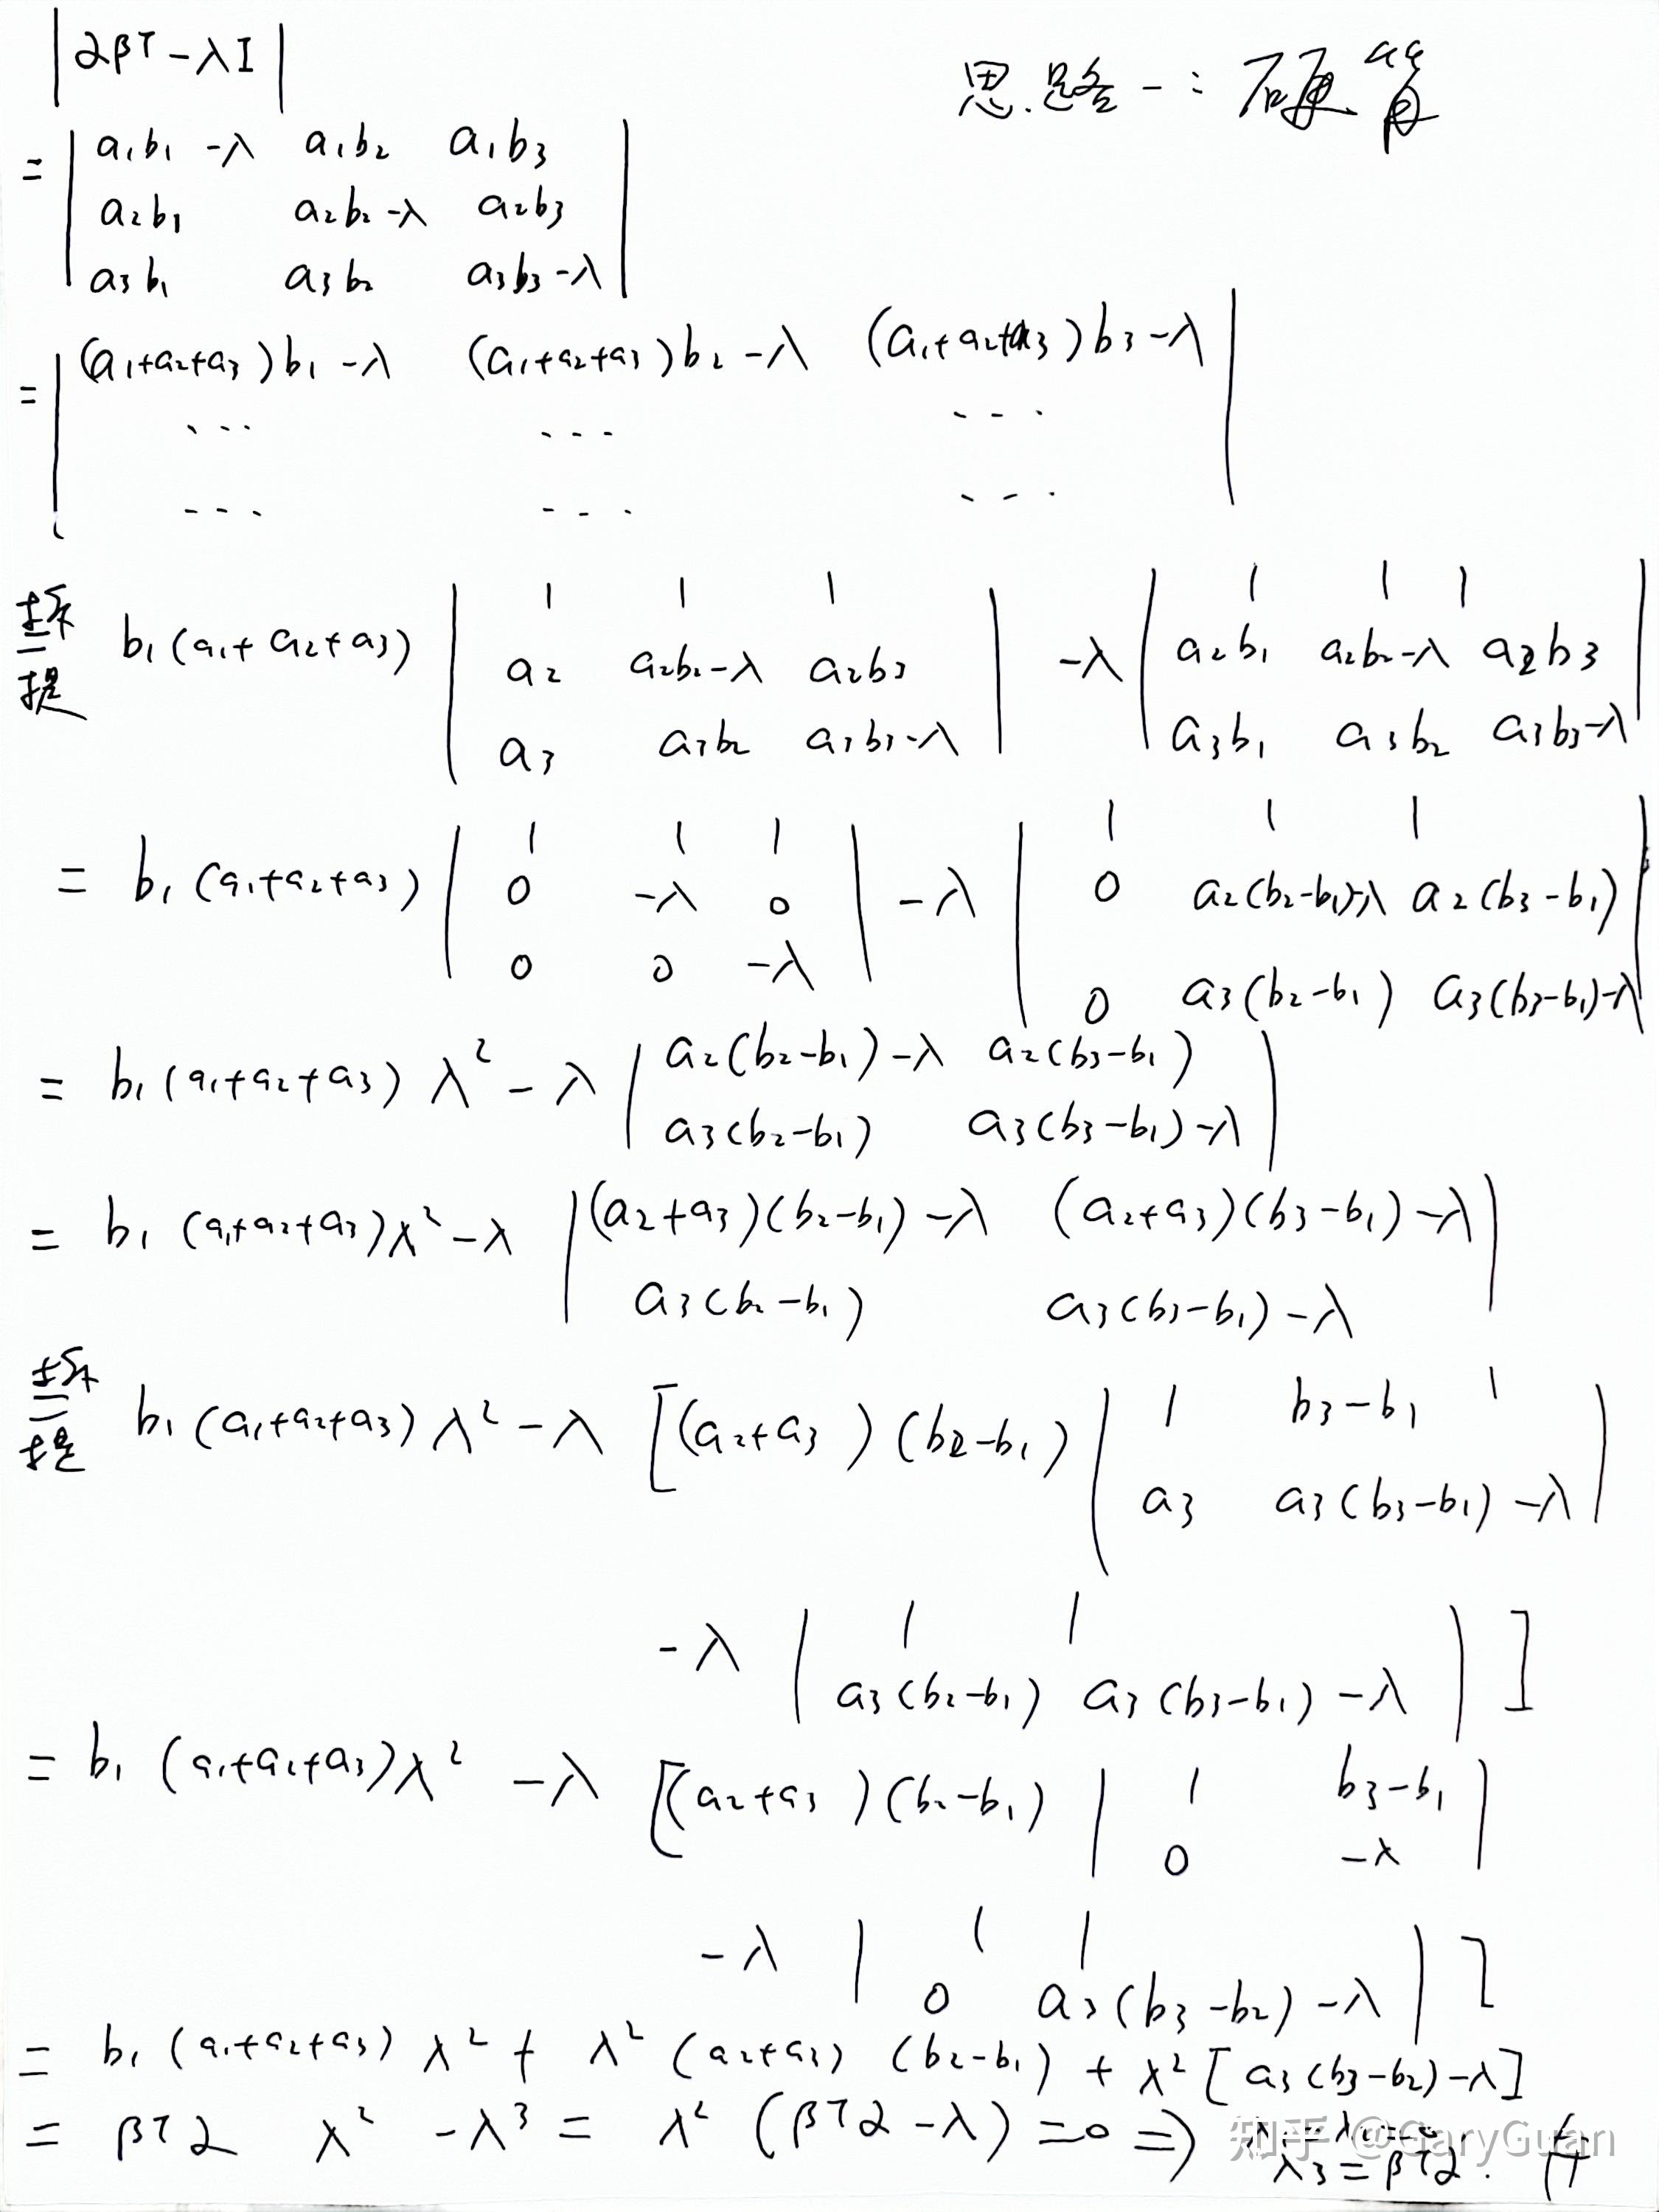 |αβᵀ - λI|
思路一: 硬算
= | a₁b₁ - λ a₁b₂ a₁b₃
a₂b₁ a₂b₂ - λ a₂b₃
a₃b₁ a₃b₂ a₃b₃ - λ |
= | (a₁+a₂+a₃)b₁ - λ (a₁+a₂+a₃)b₂ - λ (a₁+a₂+a₃)b₃ - λ
... ... ...
... ... ... |
拆
提
b₁(a₁+a₂+a₃) | 1 1 1 | - λ | 1 1 1 |
a₂ a₂b₂-λ a₂b₃ a₂b₁ a₂b₂-λ a₂b₃
a₃ a₃b₂ a₃b₃-λ a₃b₁ a₃b₂ a₃b₃-λ
= b₁(a₁+a₂+a₃) | 1 1 1 | - λ | 1 1 1 |
0 -λ 0 0 a₂(b₂-b₁)-λ a₂(b₃-b₁)
0 0 -λ 0 a₃(b₂-b₁) a₃(b₃-b₁)-λ
= b₁(a₁+a₂+a₃)λ² - λ | a₂(b₂-b₁)-λ a₂(b₃-b₁)
a₃(b₂-b₁) a₃(b₃-b₁)-λ |
= b₁(a₁+a₂+a₃)λ² - λ | (a₂+a₃)(b₂-b₁)-λ (a₂+a₃)(b₃-b₁)-λ
a₃(b₂-b₁) a₃(b₃-b₁)-λ |
拆
提
b₁(a₁+a₂+a₃)λ² - λ [(a₂+a₃)(b₂-b₁) | 1 b₃-b₁ |
a₃ a₃(b₃-b₁)-λ |
-λ | 1 1
a₃(b₂-b₁) a₃(b₃-b₁)-λ | ]
= b₁(a₁+a₂+a₃)λ² - λ [(a₂+a₃)(b₂-b₁) | 1 b₃-b₁
0 -λ |
-λ | 1 1
0 a₃(b₃-b₂)-λ | ]
= b₁(a₁+a₂+a₃)λ² + λ²(a₂+a₃)(b₂-b₁) + λ²[a₃(b₃-b₂)-λ]
= βᵀα λ² - λ³ = λ²(βᵀα - λ) = 0 ⇒
λ₃ = βᵀα.
知乎 @GaryGuan